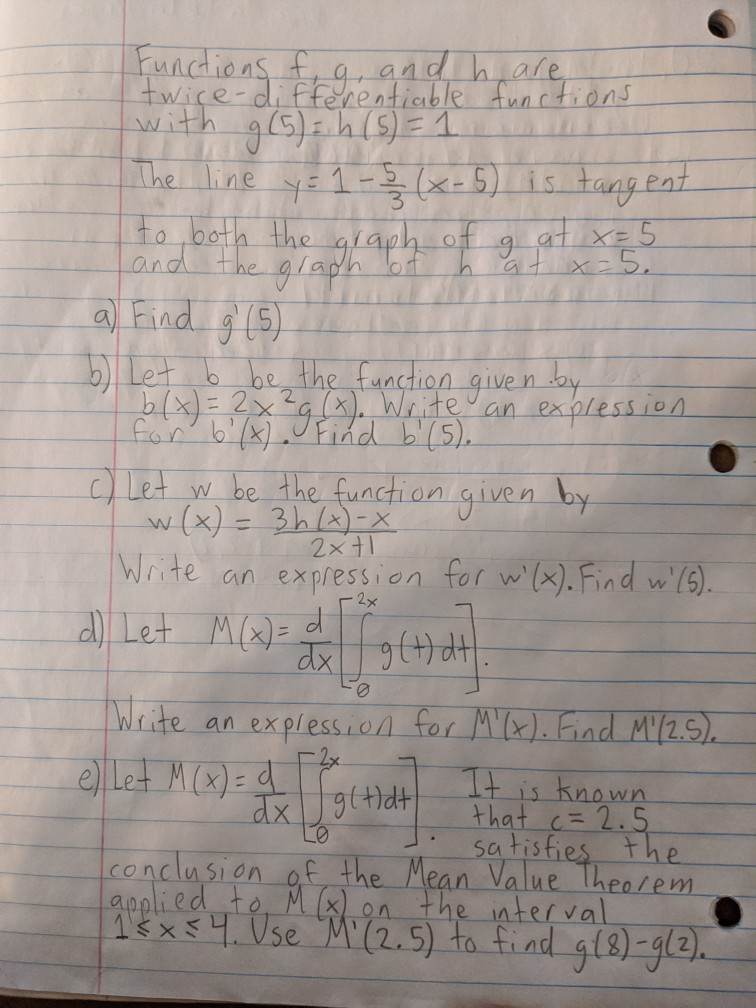 Functions f, g, and h are
twice-differentiable functions
with g(5) = h(5) = 1
The line y = 1 - 5/3 (x-5) is tangent
to both the graph of g at x=5
and the graph of h at x=5.
a) Find g'(5)
b) Let b be the function given by
b(x) = 2x²g(x). Write an expression
for b'(x). Find b'(5).
c) Let w be the function given by
w(x) = 3h(x)-x / 2x+1
Write an expression for w'(x). Find w'(5).
d) Let M(x) = d/dx [∫₀²ˣ g(t) dt].
Write an expression for M'(x). Find M'(2.5).
e) Let M(x) = d/dx [∫₀²ˣ g(t)dt]. It is known
that c = 2.5
satisfies the
conclusion of the Mean Value Theorem
applied to M(x) on the interval
1≤x≤4. Use M'(2.5) to find g(8)-g(2).